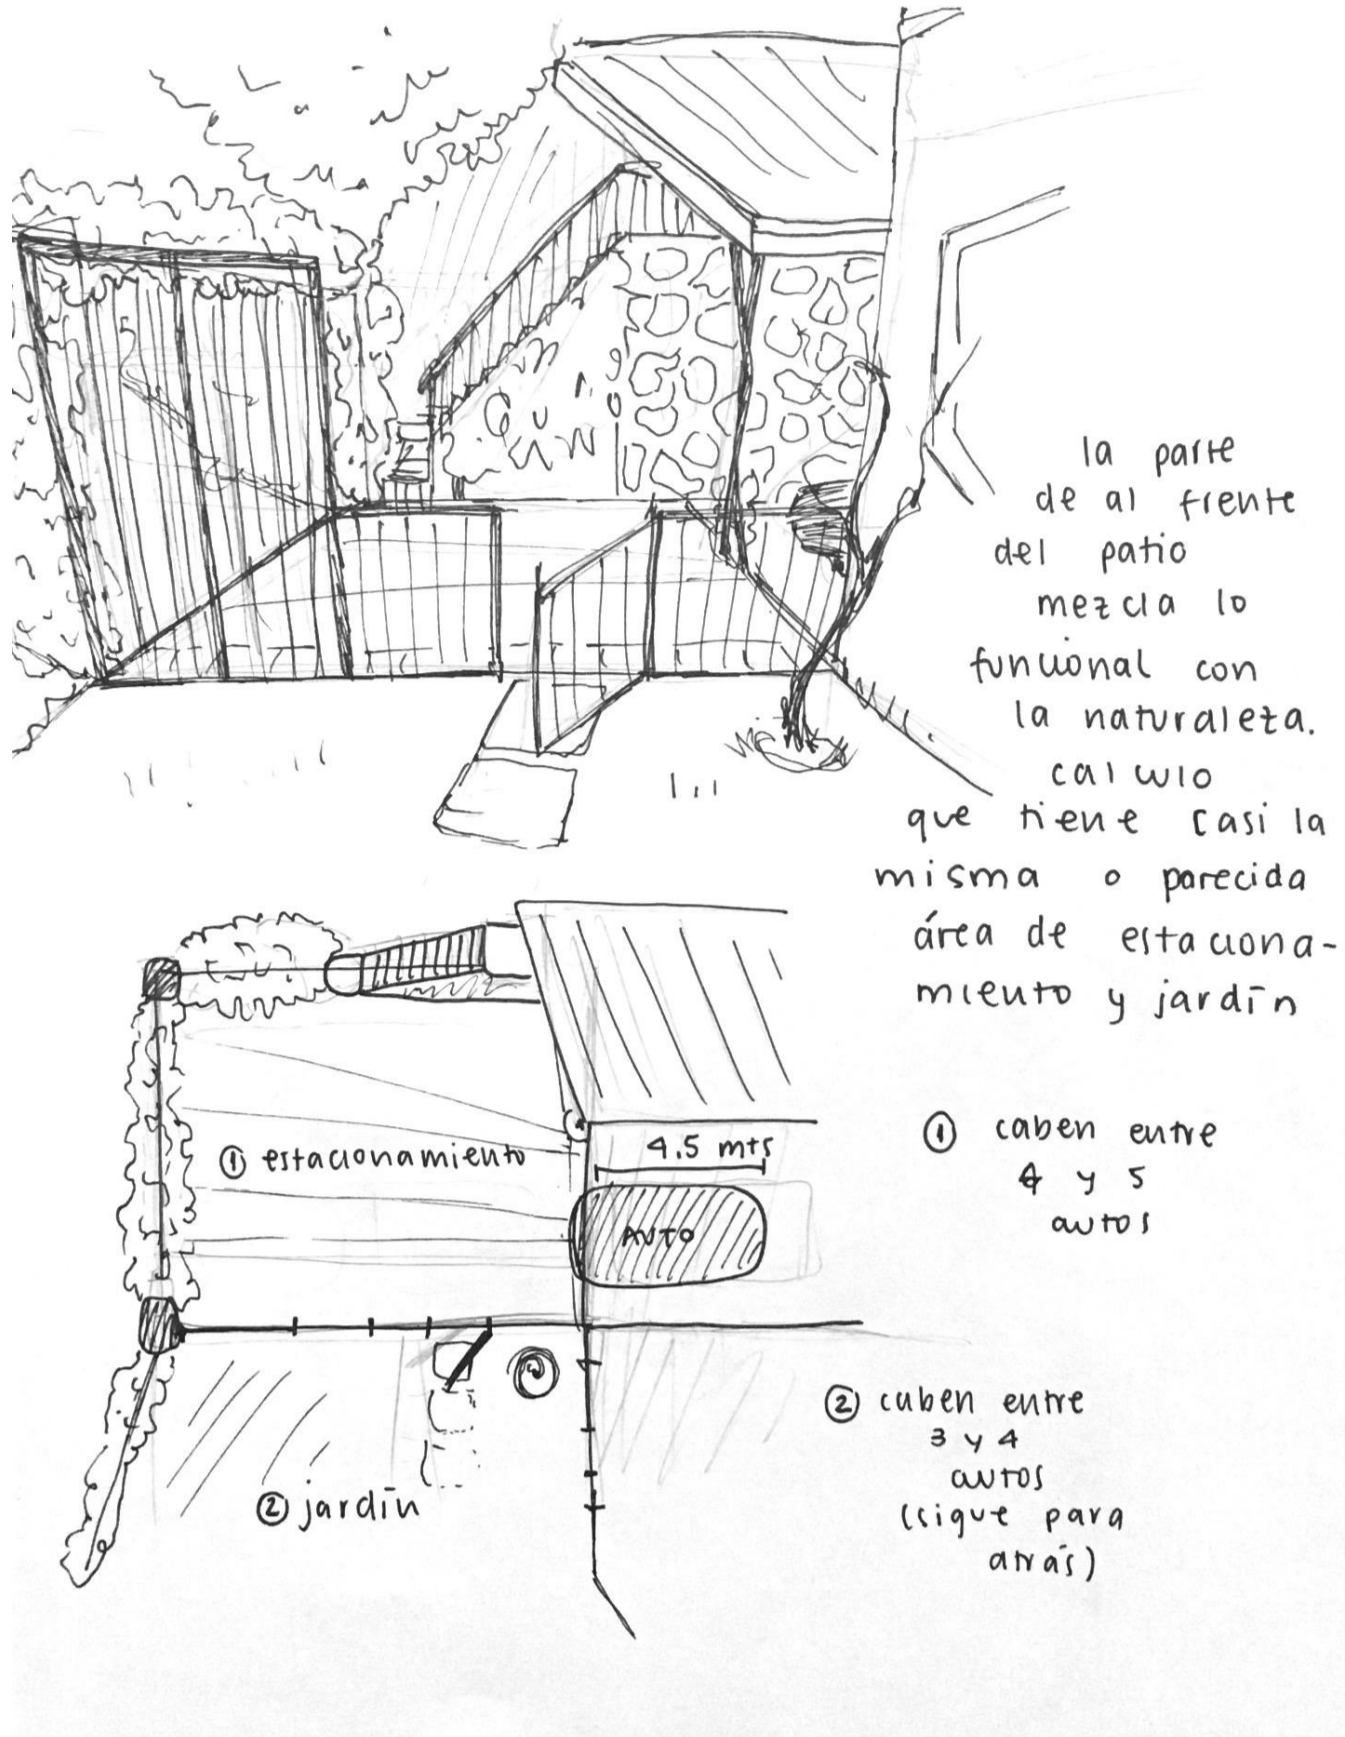 la parte
de al frente
del patio
mezcla lo
funcional con
la naturaleza.
calculo
que tiene casi la
misma o parecida
área de estaciona-
miento y jardín
① estacionamiento
4.5 mts
AUTO
① caben entre
4 y 5
autos
② jardín
② caben entre
3 y 4
autos
(sigue para
atrás)